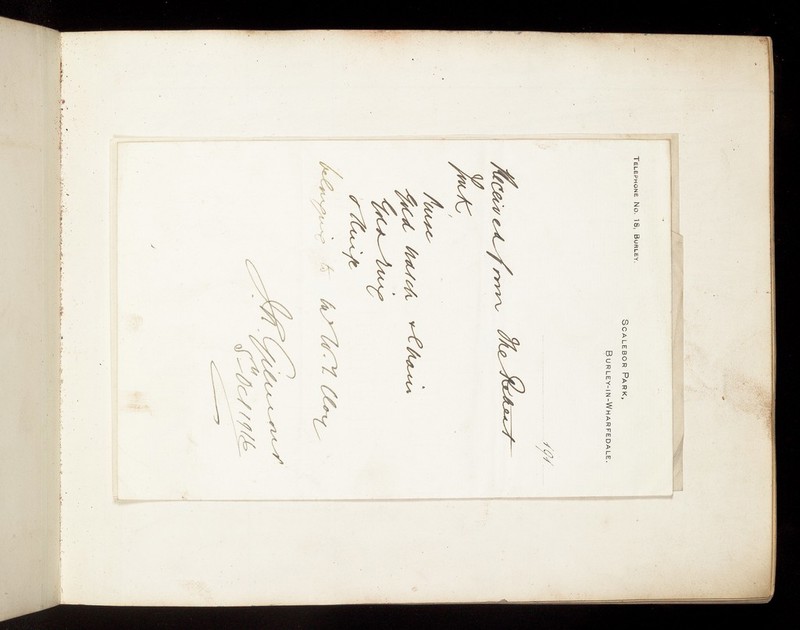 TELEPHONE NO. 18, BURLEY.
SCALEBOR PARK,
BURLEY-IN-WHARFEDALE.
191
Received from The Retreat
York
Purse
Gold watch & Chain
Gold ring
& Knife
belonging to Mr W. Y. Clog
J. R. Gilmour
5th Oct 1916